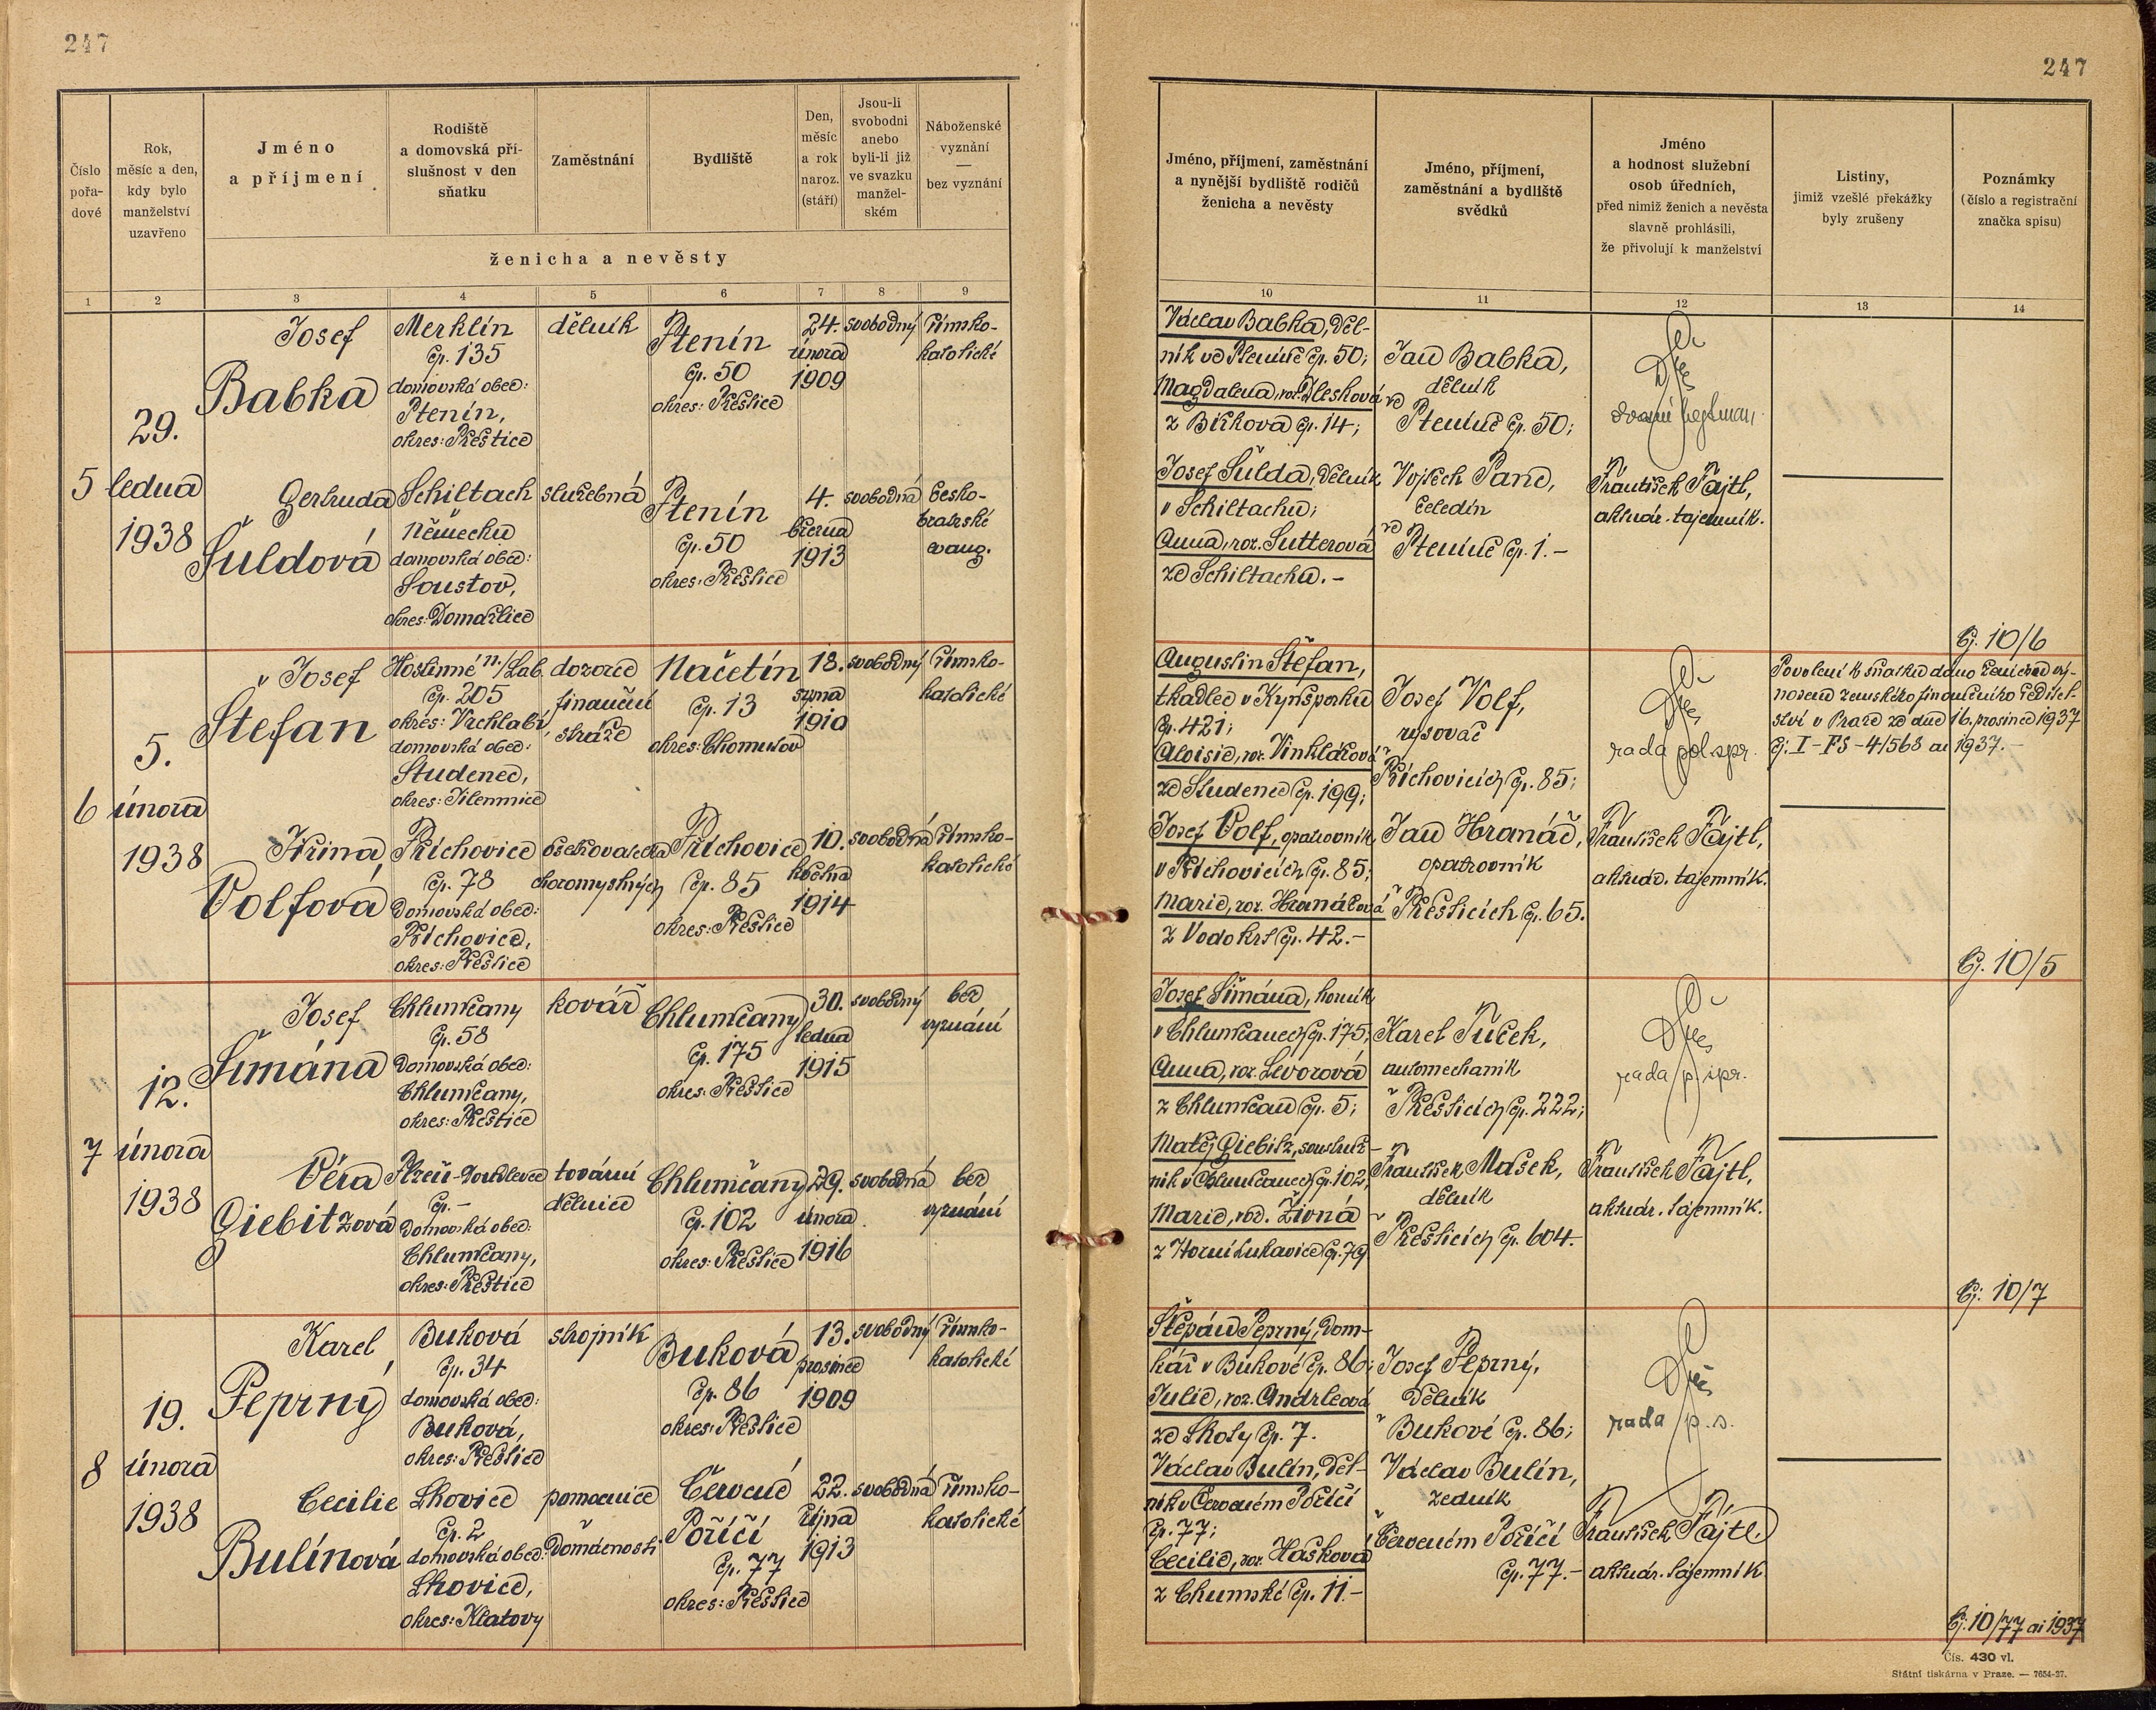 247
247
Číslo pořa-dové
Rok, měsíc a den, kdy bylo manželství uzavřeno
Jméno a příjmení
Rodiště a domovská pří-slušnost v den sňatku
Zaměstnání
Bydliště
Den, měsíc a rok naroz. (stáří)
Jsou-li svobodni anebo byli-li již ve svazku manžel-ském
Náboženské vyznání — bez vyznání
ženicha a nevěsty
Jméno, příjmení, zaměstnání a nynější bydliště rodičů ženicha a nevěsty
Jméno, příjmení, zaměstnání a bydliště svědků
Jméno a hodnost služební osob úředních, před nimiž ženich a nevěsta slavně prohlásili, že přivolují k manželství
Listiny, jimiž vzešlé překážky byly zrušeny
Poznámky (číslo a registrační značka spisu)
1 2 3 4 5 6 7 8 9 10 11 12 13 14
5
29.
ledna
1938
Josef
Babka
Merklín
čp. 135
domovská obec:
Ptenín,
okres: Přeštice
dělník
Ptenín
čp. 50
okres: Přeštice
24.
února
1909
svobodný
římsko-
katolické
Gertruda
Šuldová
Schiltach
Německu
domovská obec:
Loustov,
okres: Domažlice
služebná
Ptenín
čp. 50
okres: Přeštice
4.
března
1913
svobodná
česko-
bratrské
evang.
Václav Babka, děl-
ník ve Ptenině čp. 50;
Magdalena, roz. Dlesková
z Bížkova čp. 14;
Josef Šulda, dělník
v Schiltachu;
Anna, roz. Sutterová
ze Schiltachu.-
Jan Babka,
dělník
ve
Ptenině čp. 50;
Vojtěch Panc,
čeledín
ve
Ptenině čp. 1.-
František Fajtl,
aktuár. tajemník.
čj. 10/6
6
5.
února
1938
Josef
Štefan
Hostinné n./Lab.
čp. 205
okres: Vrchlabí,
domovská obec:
Studenec,
okres: Jilemnice
dozorce
finanční
stráže
Načetín
čp. 13
okres: Chomutov
18.
srpna
1910
svobodný
římsko-
katolické
Jiřina
Volfová
Příchovice
čp. 78
domovská obec:
Příchovice,
okres: Přeštice
ošetřovatelka
choromyslných
Příchovice
čp. 85
okres: Přeštice
10.
května
1914
svobodná
římsko-
katolické
Augustin Štefan,
tkadlec v Kynšperku
čp. 421;
Aloisie, roz. Vinklářová
ze Studence čp. 199;
Josef Volf, opatrovník
v Příchovicích čp. 85;
Marie, roz. Hranáčová
z Vodokrt čp. 42.-
Josef Volf,
rysovač
v
Příchovicích čp. 85;
Jan Hranáč,
opatrovník
v
Přešticích čp. 65.
rada pol. spr.
František Fajtl,
aktuár. tajemník.
Povolení k sňatku dáno ženichovi vý-
nosem zemského finančního ředitel-
ství v Praze ze dne 16. prosince 1937
čj: I-FS-41568 ai 1937.-
čj. 10/5
7
12.
února
1938
Josef
Šimána
Chlumčany
čp. 58
domovská obec:
Chlumčany,
okres: Přeštice
kovář
Chlumčany
čp. 175
okres: Přeštice
30.
ledna
1915
svobodný
bez
vyznání
Věra
Giebitzová
Plzeň-Doudlevce
čp. -
domovská obec:
Chlumčany,
okres: Přeštice
tovární
dělnice
Chlumčany
čp. 102
okres: Přeštice
29.
února
1916
svobodná
bez
vyznání
Josef Šimána, horník
v Chlumčanech čp. 175;
Anna, roz. Levorová
z Chlumčan čp. 5;
Matěj Giebitz, soustruž-
ník v Chlumčanech čp. 102;
Marie, roz. Živná
z Horní Lukavice čp. 79
Karel Tuček,
automechanik
v
Přešticích čp. 222;
František Mašek,
dělník
v
Přešticích čp. 604.-
František Fajtl,
aktuár. tajemník.
čj: 10/7
8
19.
února
1938
Karel
Peprný
Buková
čp. 34
domovská obec:
Buková,
okres: Přeštice
strojník
Buková
čp. 86
okres: Přeštice
13.
prosince
1909
svobodný
římsko-
katolické
Cecilie
Bulínová
Lhovice
čp. 2
domovská obec:
Lhovice,
okres: Klatovy
pomocnice
domácnosti
Červené
Poříčí
čp. 77
okres: Přeštice
22.
října
1913
svobodná
římsko-
katolické
Štěpán Peprný, dom-
kář v Bukové čp. 86;
Julie, roz. Andrleová
ze Skoty čp. 7.
Václav Bulín, děl-
ník v Červeném Poříčí
čp. 77;
Cecilie, roz. Hašková
z Chumské čp. 11.-
Josef Peprný,
dělník
v
Bukové čp. 86;
Václav Bulín,
zedník
v
Červeném Poříčí
čp. 77.-
rada p. s.
František Fajtl
aktuár. tajemník
čj: 10/77 ai 1937
Čís. 430 vl.
Státní tiskárna v Praze. — 7654-27.